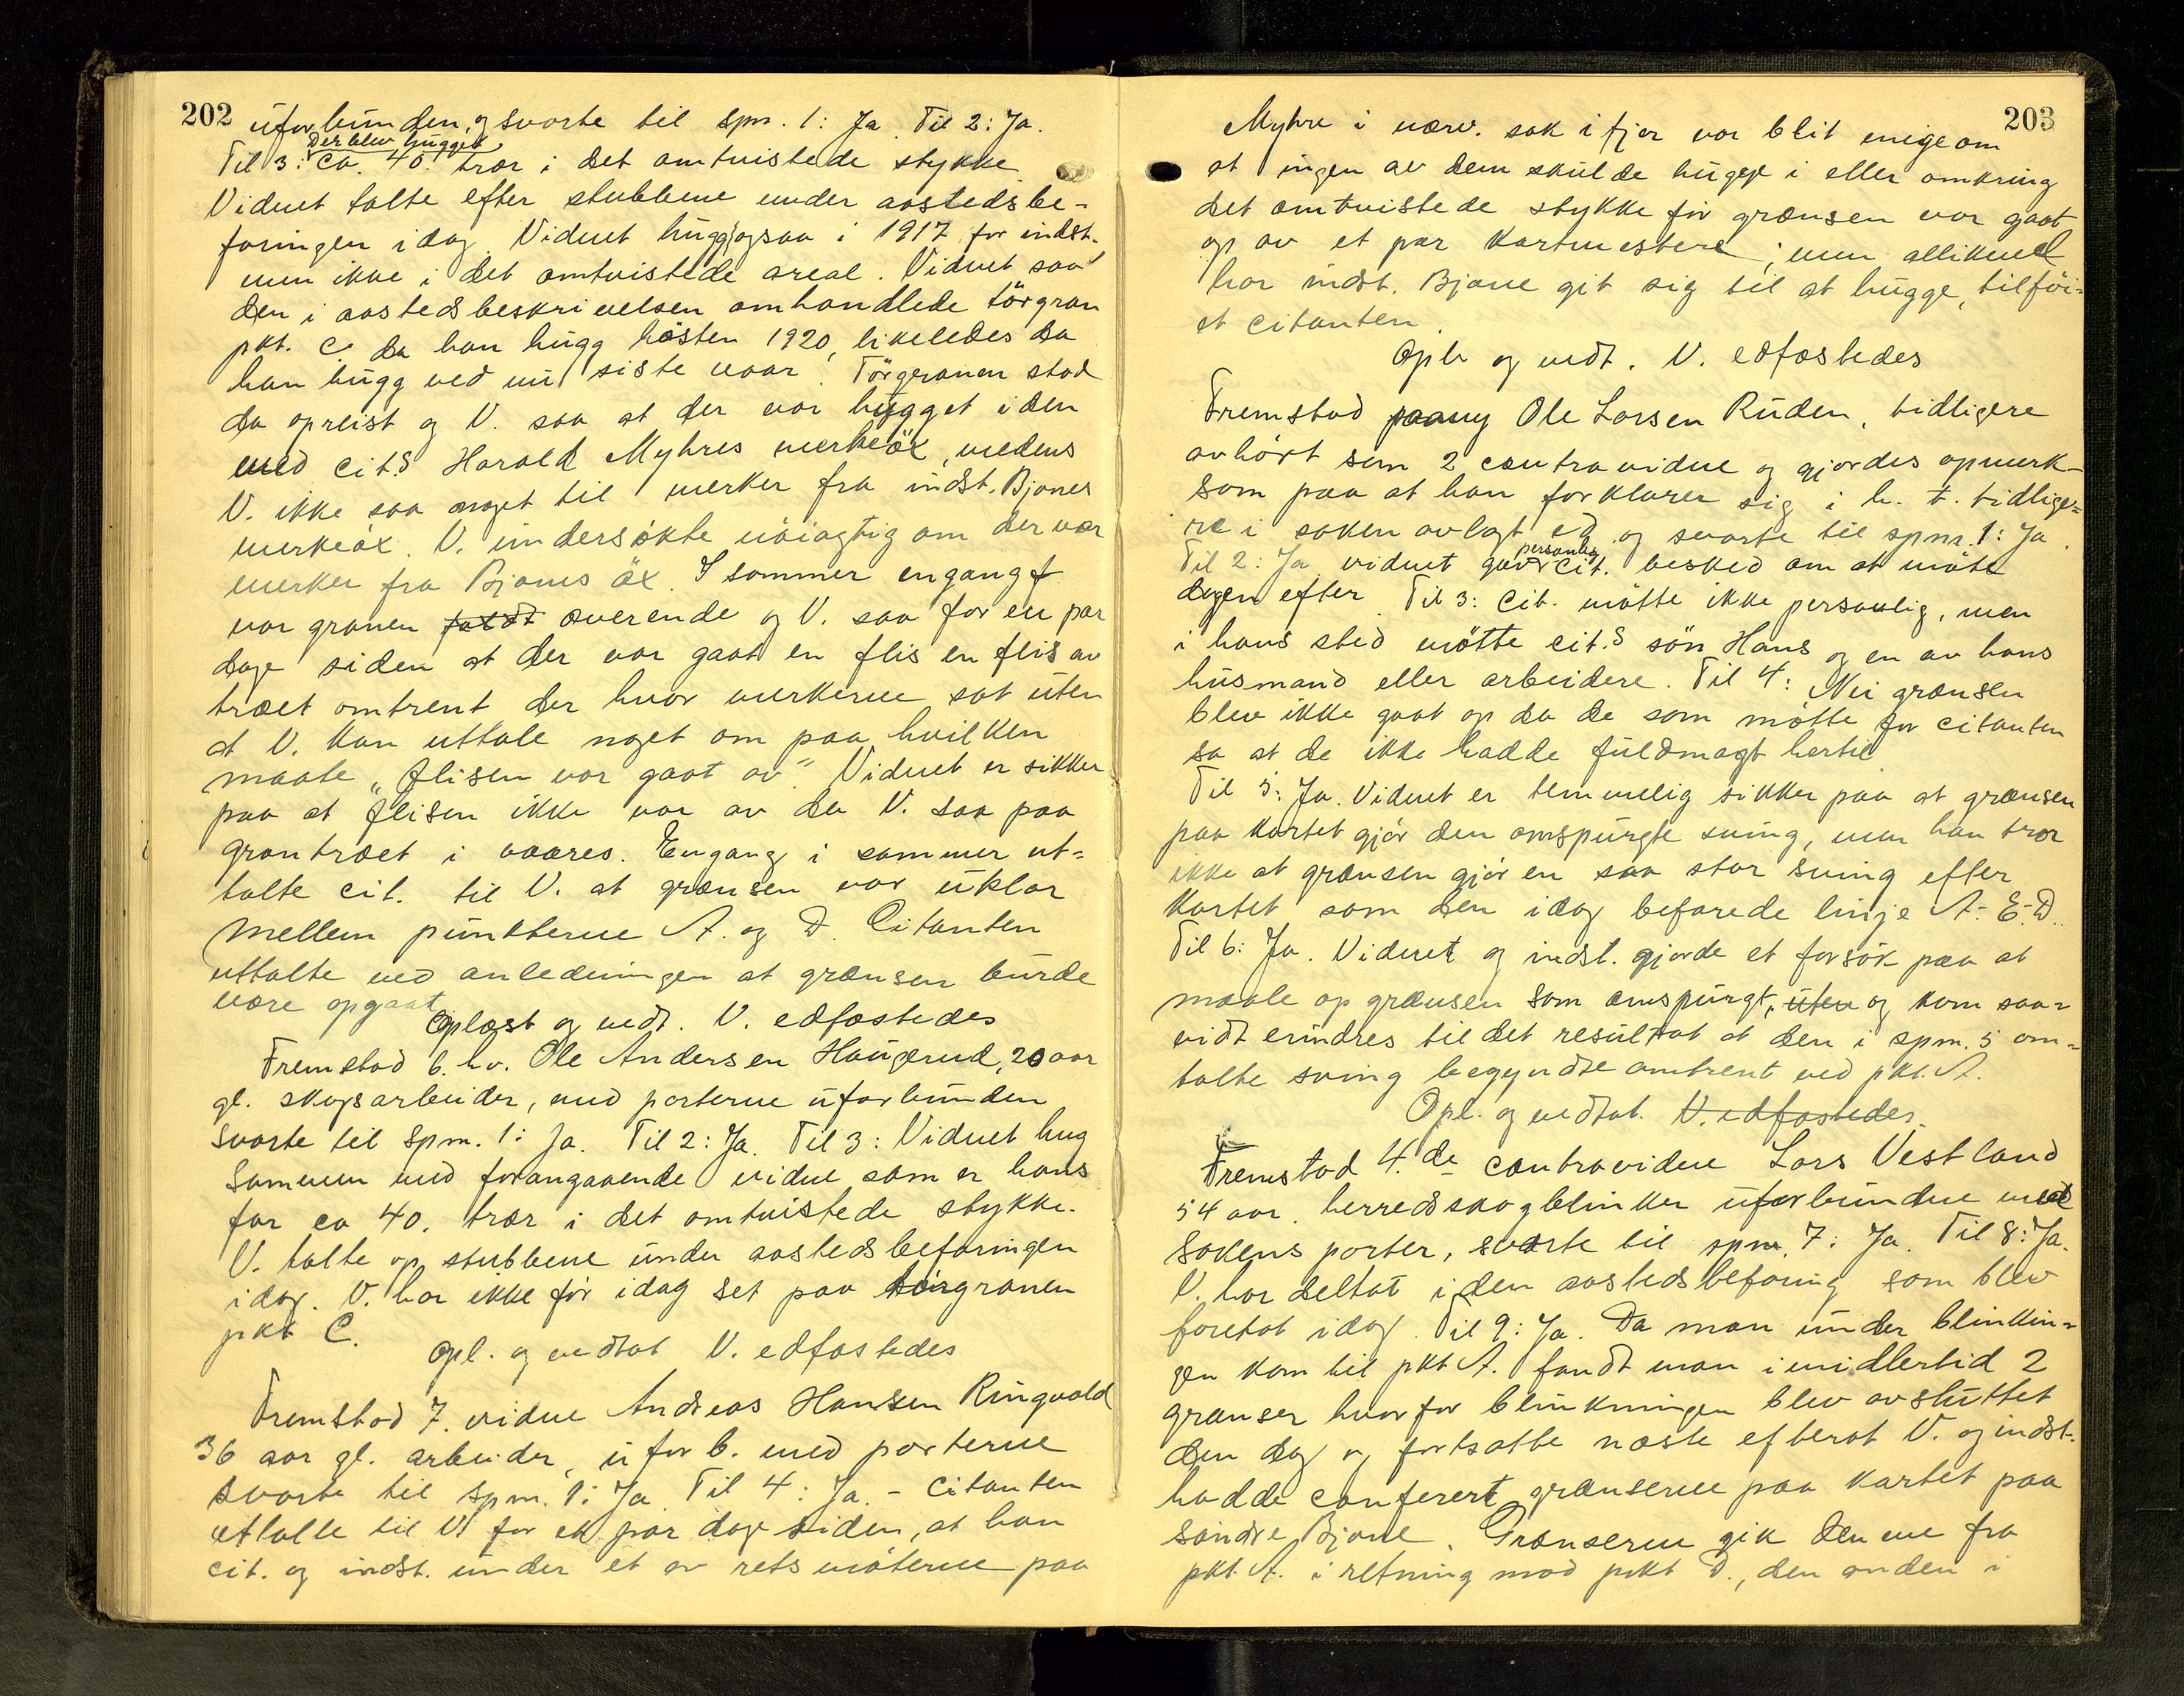 202
uforbunden, og svarte til spm. 1: Ja. Til 2: Ja.
Der blev hugget
Til 3: ca. 40. trær i det omtvistede stykke
Vidnet talte efter stubbene under aastedsbe-
faringen idag. Vidnet hugg ogsaa i 1917 for indst.
men ikke i det omtvistede areal. Vidnet saa
den i aastedsbeskrivelsen omhandlede törgran
pkt. C da han hugg hösten 1920, likeledes da
han hugg ved nu siste vaar. Törgranen stod
da opreist og V. saa at der var hugget i den
med cit.s Harald Myhres merkeöx, medens
V. ikke saa noget til merker fra indst. Bjones
merkeöx. V. undersökte nöiagtig om der var
merker fra Bjones öx. I sommer engang
var granen faldt overende og V. saa for en par
dage siden at der var gaat en flis en flis av
træet omtrent der hvor merkerne sat uten
at V. kan uttale noget om paa hvilken
maate "flisen var gaat av". Vidnet er sikker
paa at flisen ikke var av da V. saa paa
grantræet i vaares. Engang i sommer ut-
talte cit. til V. at grænsen var uklar
mellem punkterne A. og D. Citanten
uttalte ved anledningen at grænsen burde
være opgaat
Oplæst og vedt. V. edfæstedes
Fremstod 6. hv. Ole Andersen Haugerud, 20 aar
gl. skogsarbeider, med parterne uforbunden
svarte til spm. 1: Ja. Til 2: Ja. Til 3: Vidnet hug
sammen med forangaaende vidne som er hans
far ca 40. trær i det omtvistede stykke.
V. talte op stubbene under aastedsbefaringen
idag. V. har ikke för idag set paa törgranen
pkt C.
Opl. og vedtat V. edfæstedes
Fremstod 7. vidne Andreas Hansen Ringvold
36 aar gl. arbeider, uforb. med parterne
svarte til spm. 1: Ja. Til 4: Ja. - Citanten
uttalte til V. for et par dage siden, at han
cit. og indst. under et av retsmöterne paa
203
Myhre i nærv. sak ifjor var blit enige om
at ingen av dem skulde hugge i eller omkring
det omtvistede stykke för grænsen var gaat
op av et par kartmestere; men allikevel
har indst. Bjone git sig til at hugge, tilföi-
et citanten.
Opl. og vedt. V. edfæstedes
Fremstod paany Ole Larsen Ruden, tidligere
avhört som 2 contravidne og gjordes opmerk-
som paa at han forklarer sig i h. t. tidlige-
re i saken avlagt ed og svarte til spm. 1: Ja.
personlig
Til 2: Ja. vidnet gav cit. besked om at möte
dagen efter. Til 3: Cit. mötte ikke personlig, men
i hans sted mötte cit.s sön Hans og en av hans
husmænd eller arbeidere. Til 4: Nei grænsen
blev ikke gaat op da de som mötte for citanten
sa at de ikke hadde fuldmagt hertil
Til 5: Ja. Vidnet er temmelig sikker paa at grænsen
paa kartet gjör den omspurgte sving, men han tror
ikke at grænsen gjör en saa stor sving efter
kartet som den idag befarede linje A-E-D.
Til 6: Ja. Vidnet og indst. gjorde et forsök paa at
maale op grænsen som omspurgt, uten og kom saa-
vidt erindres til det resultat at den i spm. 5 om-
talte sving begyndte omtrent ved pkt. A.
Opl. og vedtat. V. edfæstedes.
Fremstod 4.de contravidne Lars Vestland
54 aar. herredsskogblinker uforbunden med
sakens parter, svarte til spm. 7: Ja. Til 8: Ja.
V. har deltat i den aastedsbefaring som blev
foretat idag. Til 9: Ja. Da man under blinkin-
gen kom til pkt A. fandt man imidlertid 2
grænser hvorfor blinkningen blev avsluttet
den dag og fortsatte næste efterat V. og indst.
hadde conferert grænserne paa kartet paa
söndre Bjone. Grænserne gik denne fra
pkt. A. i retning mod pkt D., den anden i